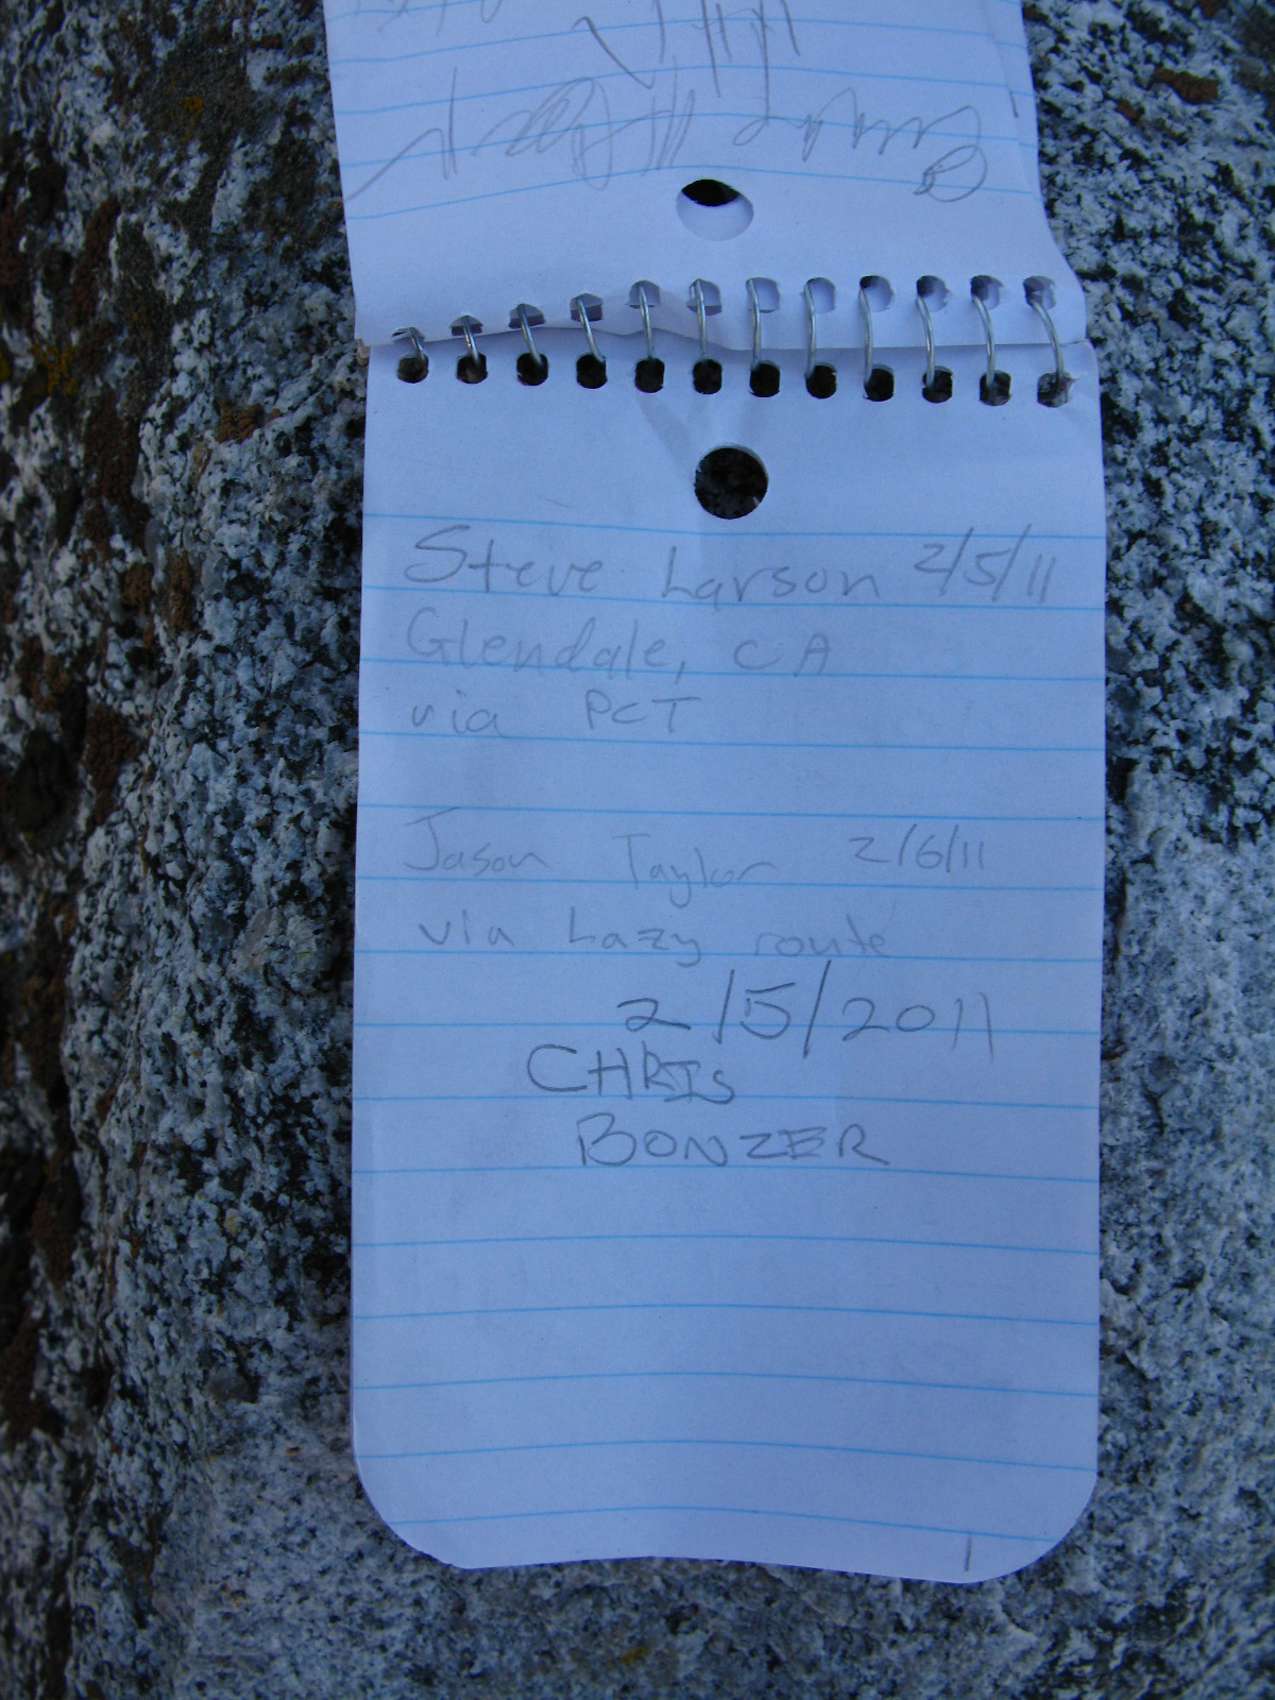 Steve Larson 2/5/11
Glendale, CA
via PCT
Jason Taylor 2/6/11
via Lazy route
2/5/2011
CHRIS
BONZER